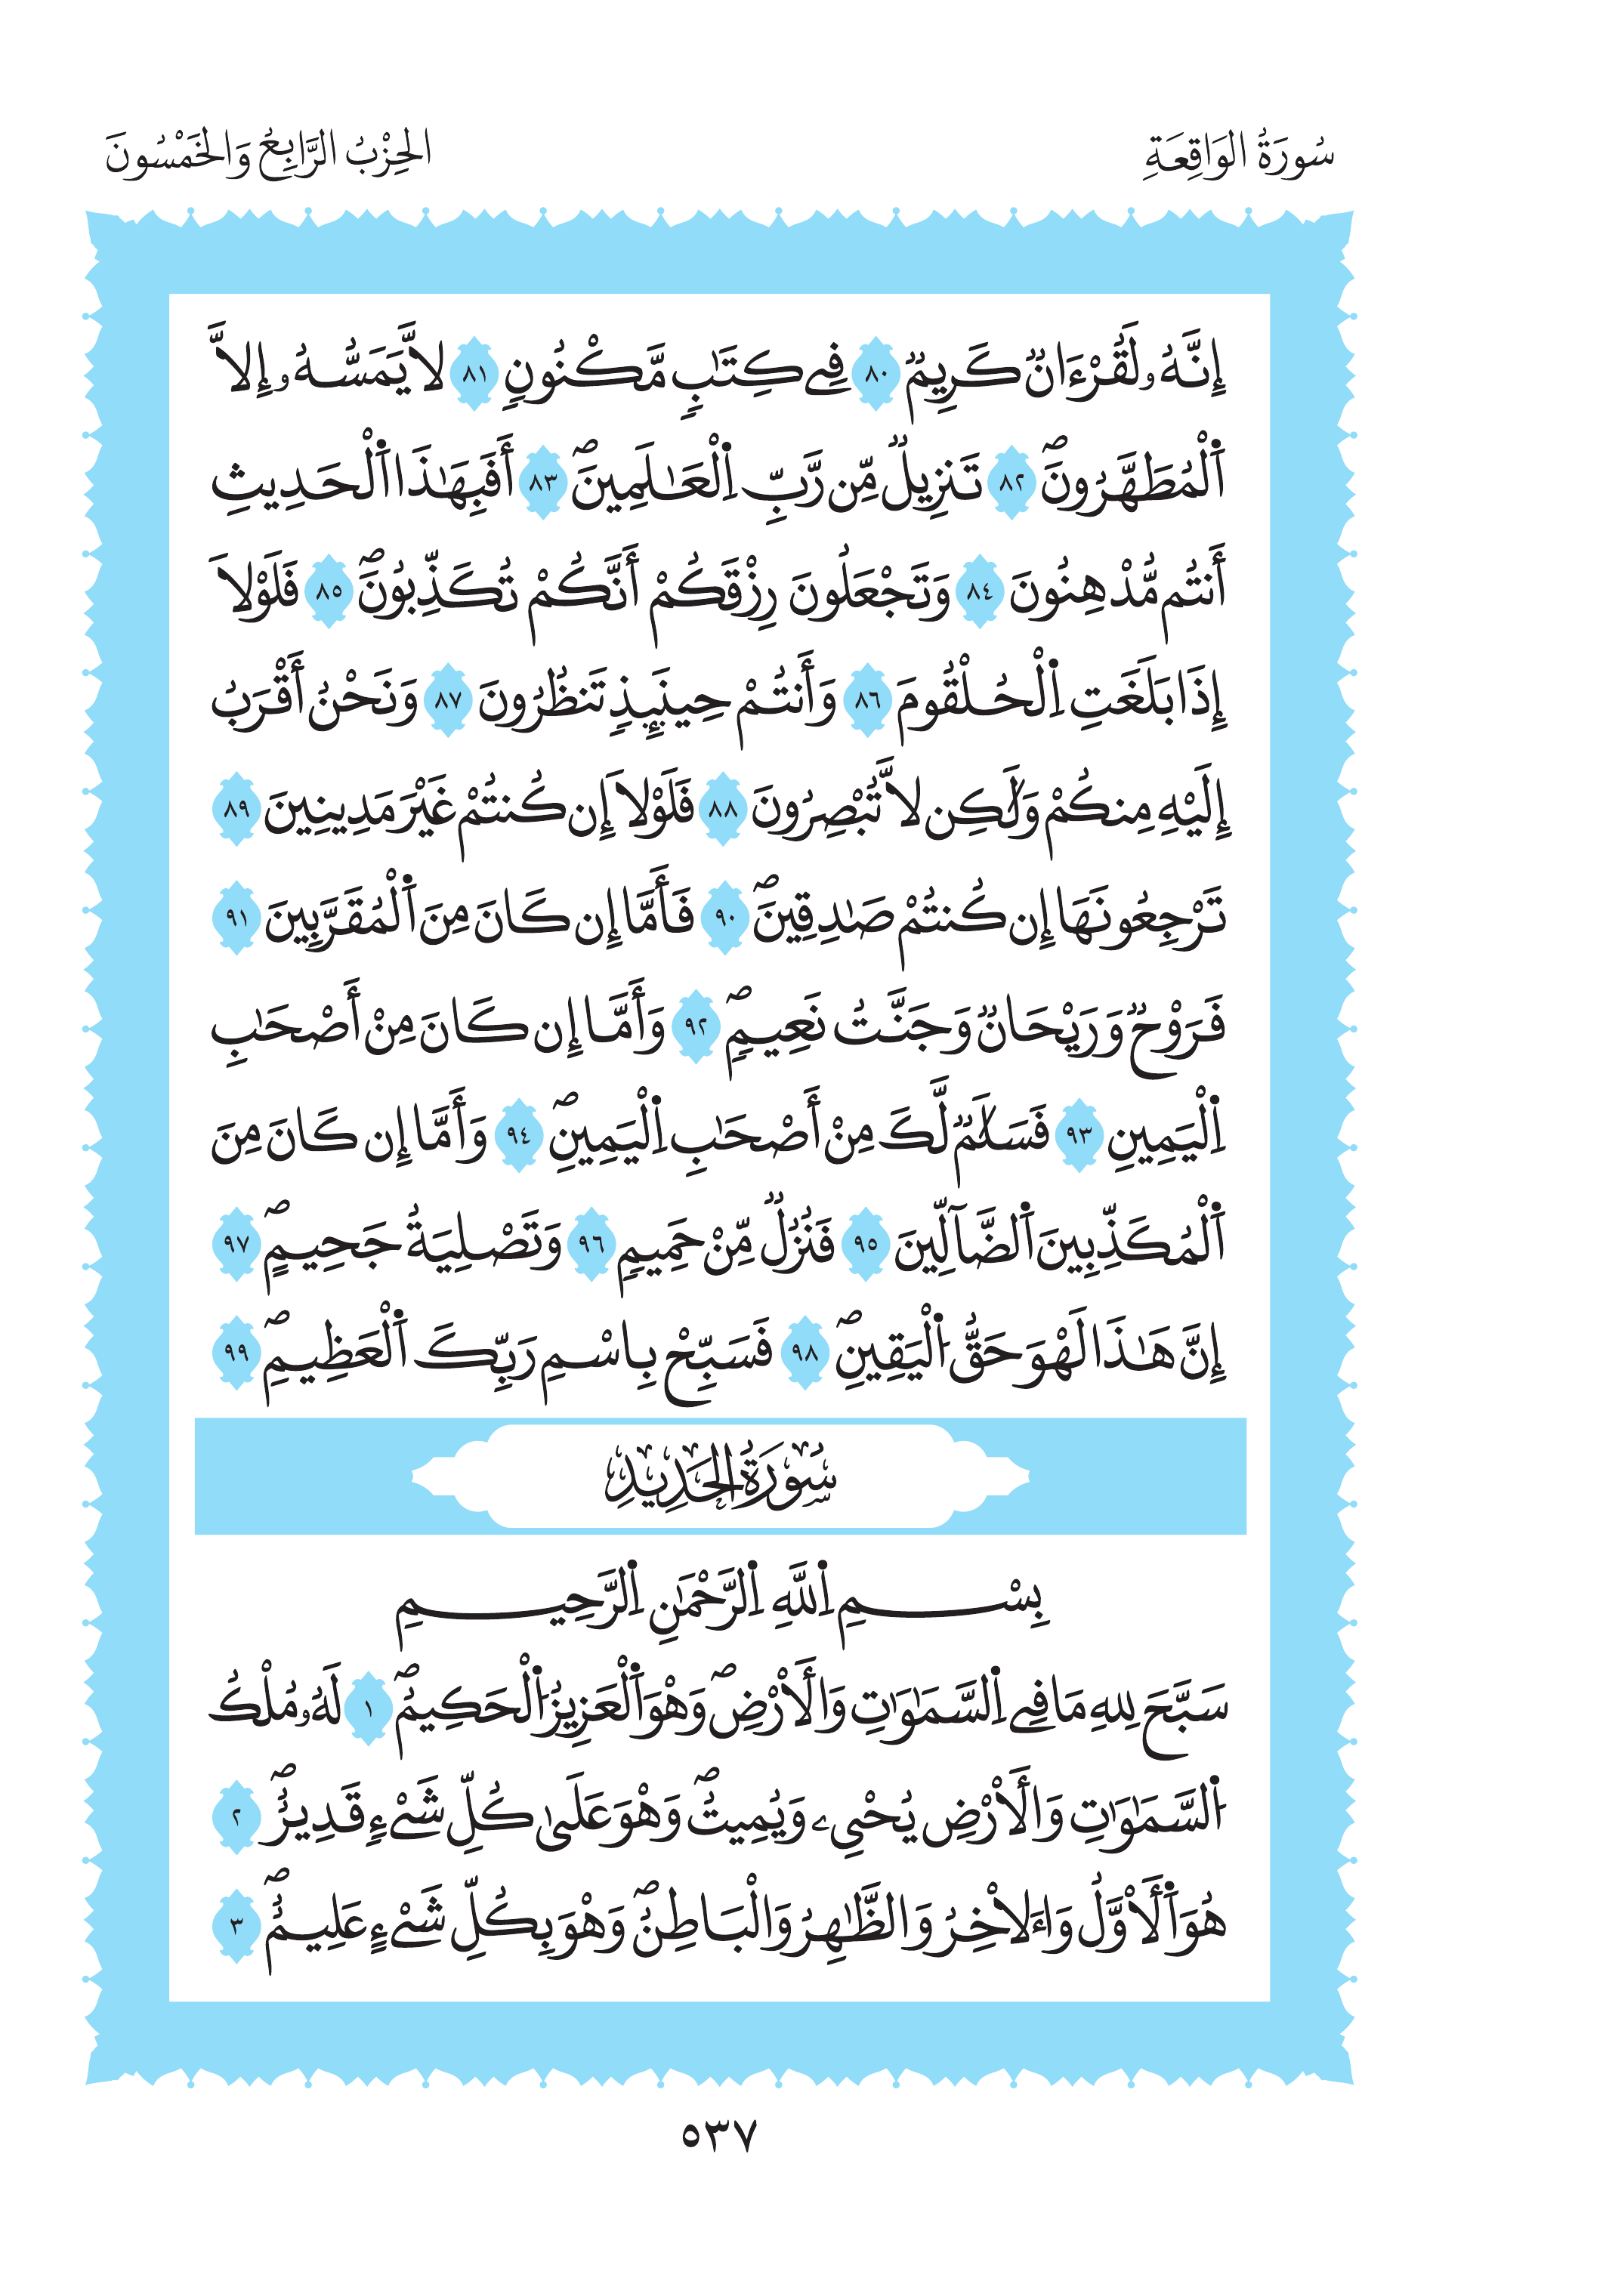 سُورَةُ الوَاقِعَةِ
الحِزْبُ الرَّابِعُ وَالخَمْسُونَ
إِنَّهُۥ لَقُرْءَانٌ كَرِيمٌ ٨٠ فِے كِتَٰبٍ مَّكْنُونٍ ٨١ لَا يَّمَسُّهُۥ إِلَّا
اَ۬لْمُطَهَّرُونَۖ ٨٢ تَنزِيلٌ مِّن رَّبِّ اِ۬لْعَٰلَمِينَۖ ٨٣ أَفَبِهَٰذَا اَ۬لْحَدِيثِ
أَنتُم مُّدْهِنُونَ ٨٤ وَتَجْعَلُونَ رِزْقَكُمْ أَنَّكُمْ تُكَذِّبُونَۖ ٨٥ فَلَوْلَا
إِذَا بَلَغَتِ اِ۬لْحُلْقُومَ ٨٦ وَأَنتُمْ حِينَئِذٍ تَنظُرُونَ ٨٧ وَنَحْنُ أَقْرَبُ
إِلَيْهِ مِنكُمْ وَلَٰكِن لَّا تُبْصِرُونَ ٨٨ فَلَوْلَا إِن كُنتُمْ غَيْرَ مَدِينِينَ ٨٩
تَرْجِعُونَهَا إِن كُنتُمْ صَٰدِقِينَۖ ٩٠ فَأَمَّا إِن كَانَ مِنَ اَ۬لْمُقَرَّبِينَ ٩١
فَرَوْحٌ وَرَيْحَانٌ وَجَنَّتُ نَعِيمٍۖ ٩٢ وَأَمَّا إِن كَانَ مِنْ أَصْحَٰبِ
اِ۬لْيَمِينِ ٩٣ فَسَلَٰمٌ لَّكَ مِنْ أَصْحَٰبِ اِ۬لْيَمِينِۖ ٩٤ وَأَمَّا إِن كَانَ مِنَ
اَ۬لْمُكَذِّبِينَ اَ۬لضَّآلِّينَ ٩٥ فَنُزُلٌ مِّنْ حَمِيمٍ ٩٦ وَتَصْلِيَةُ جَحِيمٍۖ ٩٧
إِنَّ هَٰذَا لَهْوَ حَقُّ اُ۬لْيَقِينِۖ ٩٨ فَسَبِّحْ بِاسْمِ رَبِّكَ اَ۬لْعَظِيمِۖ ٩٩
سُورَةُ الحَدِيدِ
بِسْمِ اِ۬للَّهِ اِ۬لرَّحْمَٰنِ اِ۬لرَّحِيمِ
سَبَّحَ لِلهِ مَا فِے اِ۬لسَّمَٰوَٰتِ وَالْأَرْضِۖ وَهْوَ اَ۬لْعَزِيزُ اُ۬لْحَكِيمُۖ ١ لَهُۥ مُلْكُ
اُ۬لسَّمَٰوَٰتِ وَالْأَرْضِ يُحْيِۦ وَيُمِيتُۖ وَهْوَ عَلَىٰ كُلِّ شَےْءٍ قَدِيرٌۖ ٢
هُوَ اَ۬لْأَوَّلُ وَاءَلَاخِرُ وَالظَّٰهِرُ وَالْبَاطِنُۖ وَهْوَ بِكُلِّ شَےْءٍ عَلِيمٌۖ ٣
٥٣٧